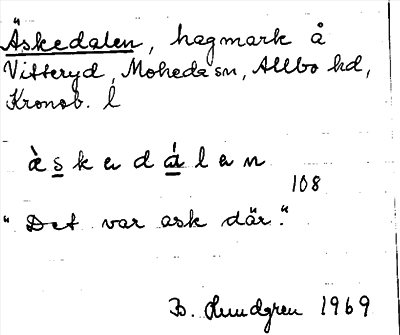 Äskedalen, hagmark å
Vitteryd, Moheda sn, Allbo hd,
Kronob. l
ä̀ s k e d á l e n
108
"Det var ask där."
B. Lundgren 1969